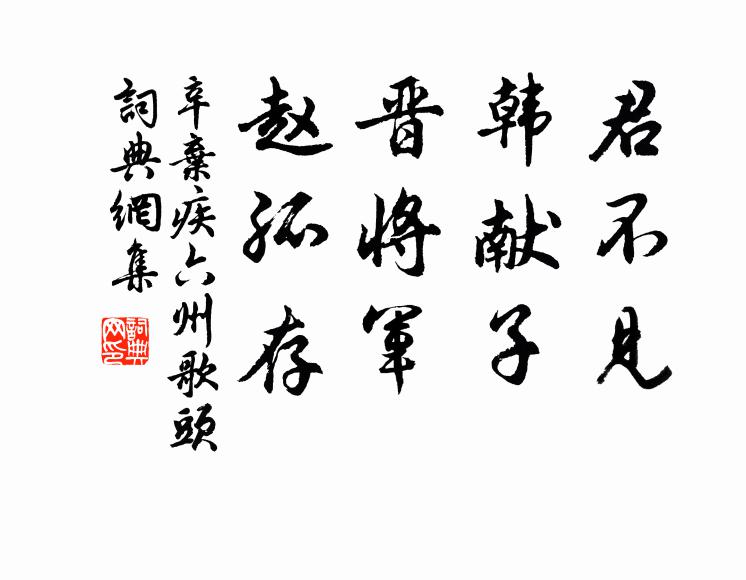 君不见
韩献子
晋将军
赵孤存
辛棄疾六州歌頭
詞典網集
詞典网印